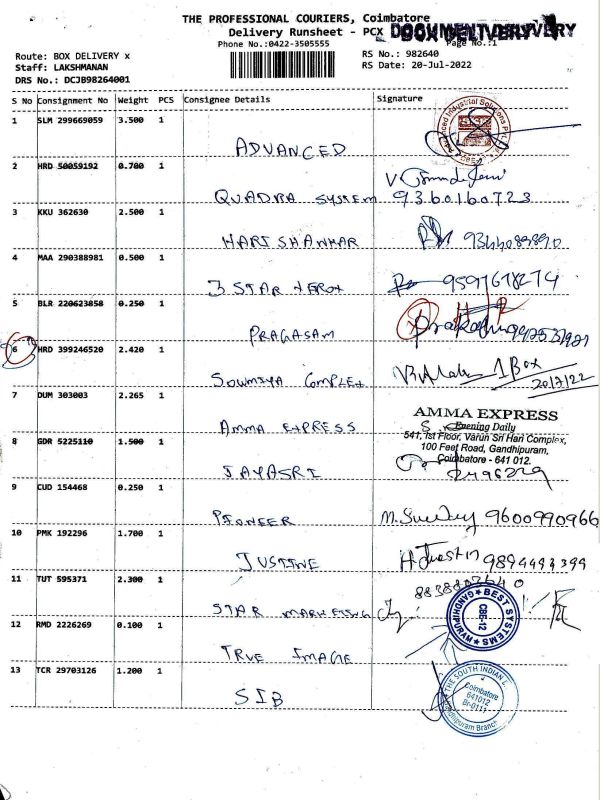 THE PROFESSIONAL COURIERS, Coimbatore
Delivery Runsheet - PCX
BOX DELIVERY
Phone No.:0422-3505555
Page No.:1
Route: BOX DELIVERY x
RS No.: 982640
Staff: LAKSHMANAN
RS Date: 20-Jul-2022
DRS No.: DCJB98264001
S No Consignment No Weight PCS Consignee Details Signature
1 SLM 299669059 3.500 1
ADVANCED
2 HRD 50059192 0.700 1
QUADRA SYSTEM 9360160723
3 KKU 362630 2.500 1
HARISHANKAR
4 MAA 290388981 0.500 1
3 STAR XEROX
5 BLR 220623858 0.250 1
PRAGASAM
6 HRD 399246520 2.420 1
SOWMIYA COMPLEX 1 Box
20/7/22
7 DUM 303003 2.265 1
AMMA EXPRESS
Evening Daily
AMMA EXPRESS 541, Ist Floor, Varun Sri Hari Complex,
100 Feet Road, Gandhipuram,
8 GDR 5225110 1.500 1 Coimbatore - 641 012.
JAYASRI
9 CUD 154468 0.250 1
PIONEER 9600990966
10 PMK 192296 1.700 1
JUSTINE H. Justin 9894493399
11 TUT 595371 2.300 1
STAR MARKETING
BEST SYSTEMS
CBE-12
GANDHIPURAM
12 RMD 2226269 0.100 1
TRUE IMAGE
13 TCR 29703126 1.200 1
SIB
THE SOUTH INDIAN
Coimbatore
641012
Gandhipuram Branch